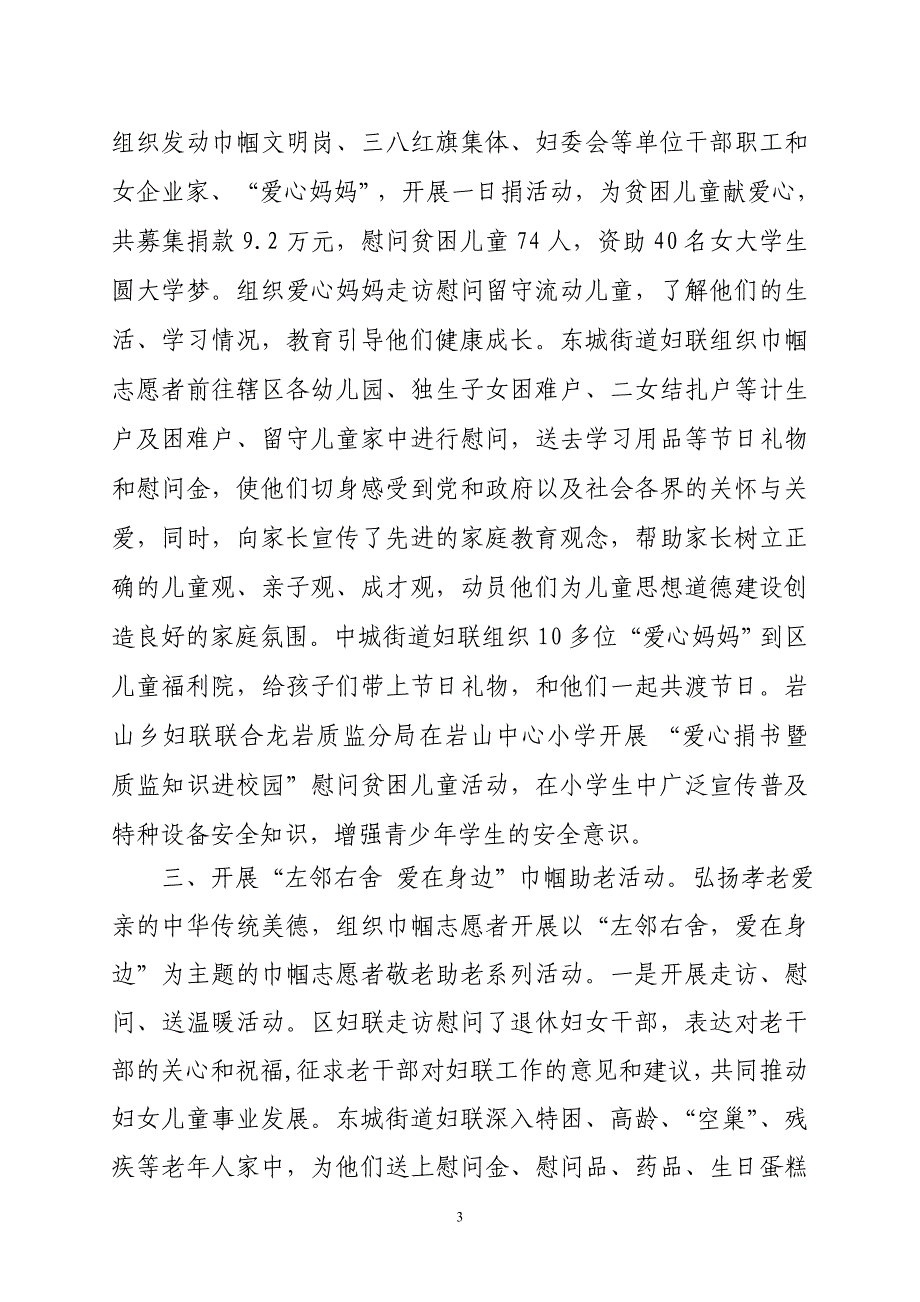 组织发动巾帼文明岗、三八红旗集体、妇委会等单位干部职工和
女企业家、“爱心妈妈”，开展一日捐活动，为贫困儿童献爱心，
共募集捐款 9.2 万元，慰问贫困儿童 74 人，资助 40 名女大学生
圆大学梦。组织爱心妈妈走访慰问留守流动儿童，了解他们的生
活、学习情况，教育引导他们健康成长。东城街道妇联组织巾帼
志愿者前往辖区各幼儿园、独生子女困难户、二女结扎户等计生
户及困难户、留守儿童家中进行慰问，送去学习用品等节日礼物
和慰问金，使他们切身感受到党和政府以及社会各界的关怀与关
爱，同时，向家长宣传了先进的家庭教育观念，帮助家长树立正
确的儿童观、亲子观、成才观，动员他们为儿童思想道德建设创
造良好的家庭氛围。中城街道妇联组织 10 多位“爱心妈妈”到区
儿童福利院，给孩子们带上节日礼物，和他们一起共渡节日。岩
山乡妇联联合龙岩质监分局在岩山中心小学开展 “爱心捐书暨
质监知识进校园”慰问贫困儿童活动，在小学生中广泛宣传普及
特种设备安全知识，增强青少年学生的安全意识。
三、开展“左邻右舍 爱在身边”巾帼助老活动。弘扬孝老爱
亲的中华传统美德，组织巾帼志愿者开展以“左邻右舍，爱在身
边”为主题的巾帼志愿者敬老助老系列活动。一是开展走访、慰
问、送温暖活动。区妇联走访慰问了退休妇女干部，表达对老干
部的关心和祝福,征求老干部对妇联工作的意见和建议，共同推动
妇女儿童事业发展。东城街道妇联深入特困、高龄、“空巢”、残
疾等老年人家中，为他们送上慰问金、慰问品、药品、生日蛋糕
3